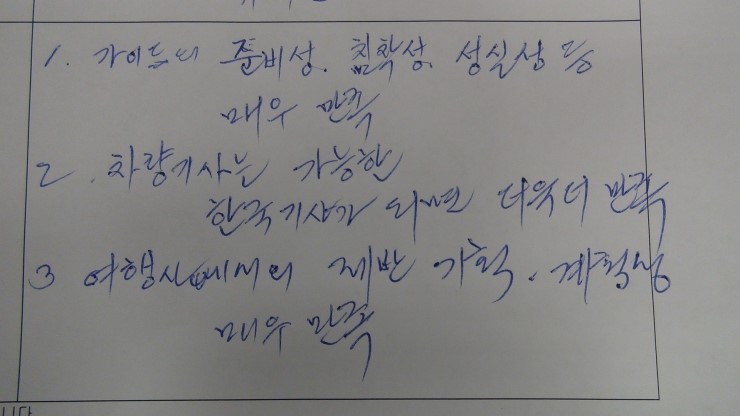 1. 가이드의 준비성, 침착성, 성실성 등
매우 만족
2. 차량기사는 가능한
한국기사가 되면 더욱더 만족
3 여행사에서의 제반 기획, 계획성
매우 만족
니다